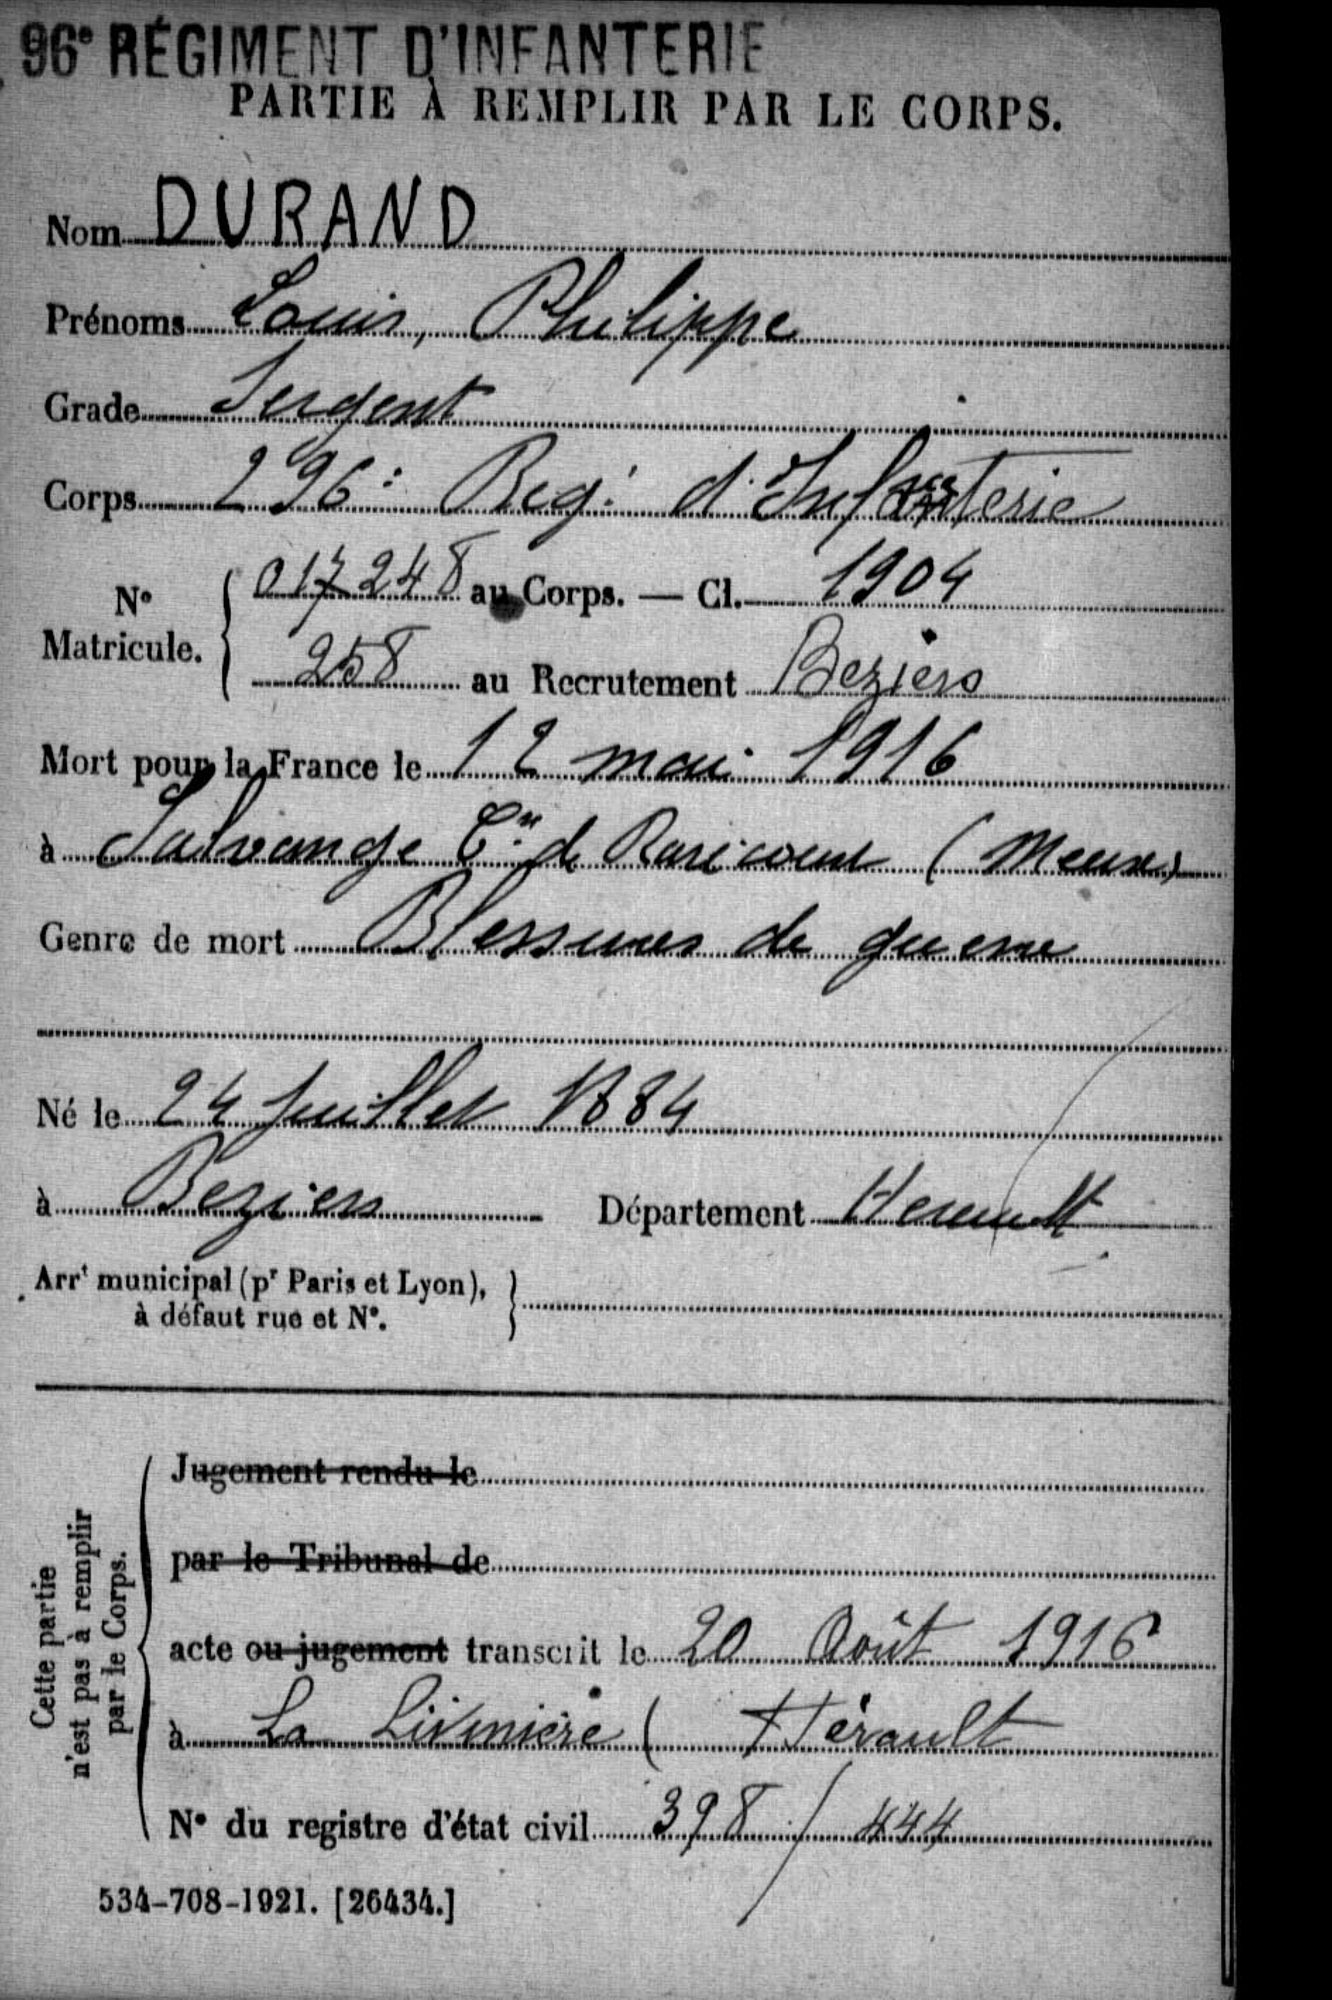 96e RÉGIMENT D'INFANTERIE
PARTIE À REMPLIR PAR LE CORPS.
Nom DURAND
Prénoms Louis, Philippe
Grade Sergent
Corps 296e Reg. d'Infanterie
No Matricule. { 017248 au Corps. — Cl. 1904
258 au Recrutement Beziers
Mort pour la France le 12 mai 1916
à Salvange Cne de Raricourt (Meuse)
Genre de mort Blessures de guerre
Né le 24 Juillet 1884
à Beziers Département Herault
Arrt municipal (pr Paris et Lyon), }
à défaut rue et No.
Cette partie
n'est pas à remplir
par le Corps.
Jugement rendu le
par le Tribunal de
acte ou jugement transcrit le 20 Août 1916
à La Livinière ( Hérault
No du registre d'état civil 398 / 444
534-708-1921. [26434.]